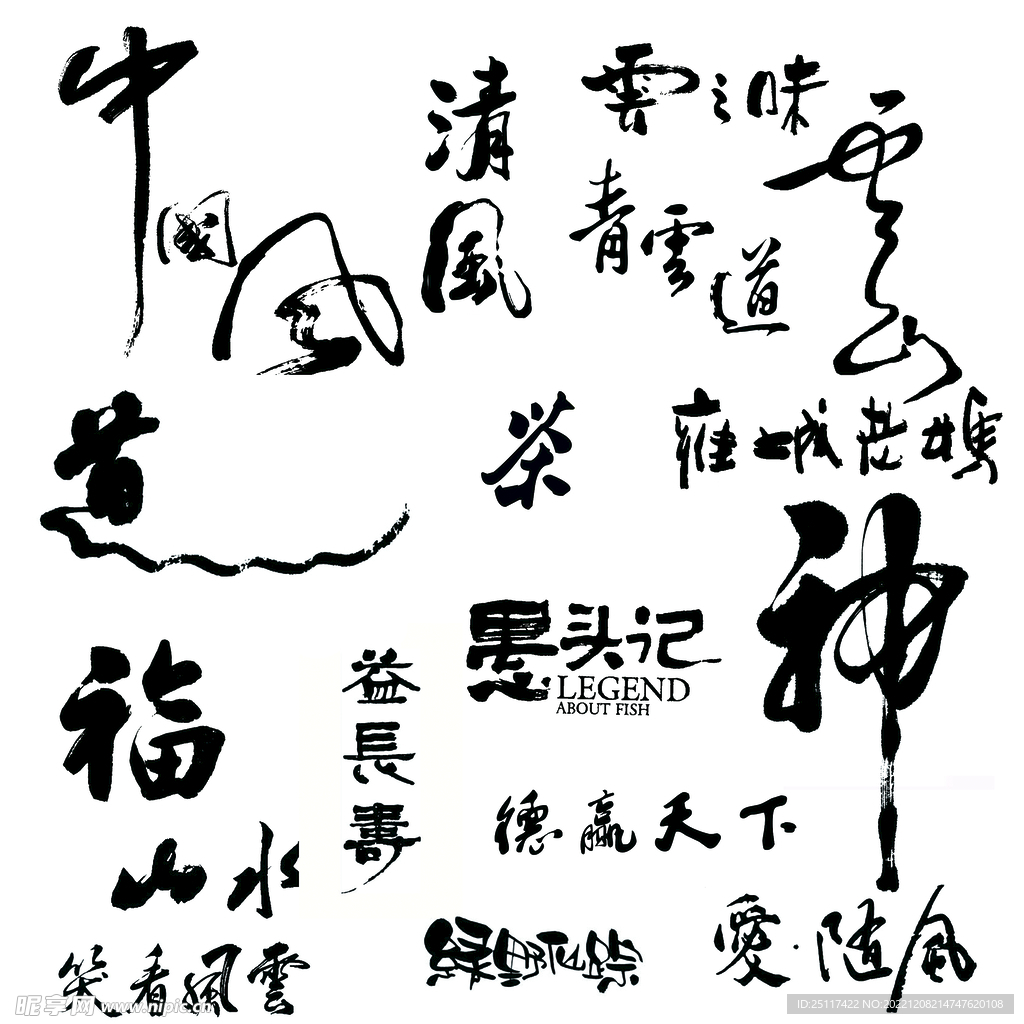 中國风
清風
雲之味
青雲道
雲山
道
茶
雍城老媽
神
福
益長壽
愚头记
LEGEND
ABOUT FISH
德赢天下
山水
笑看風雲
綠野仙踪
愛·随風
昵享网 www.nipic.cn
ID:25117422 NO:20221208214747620108